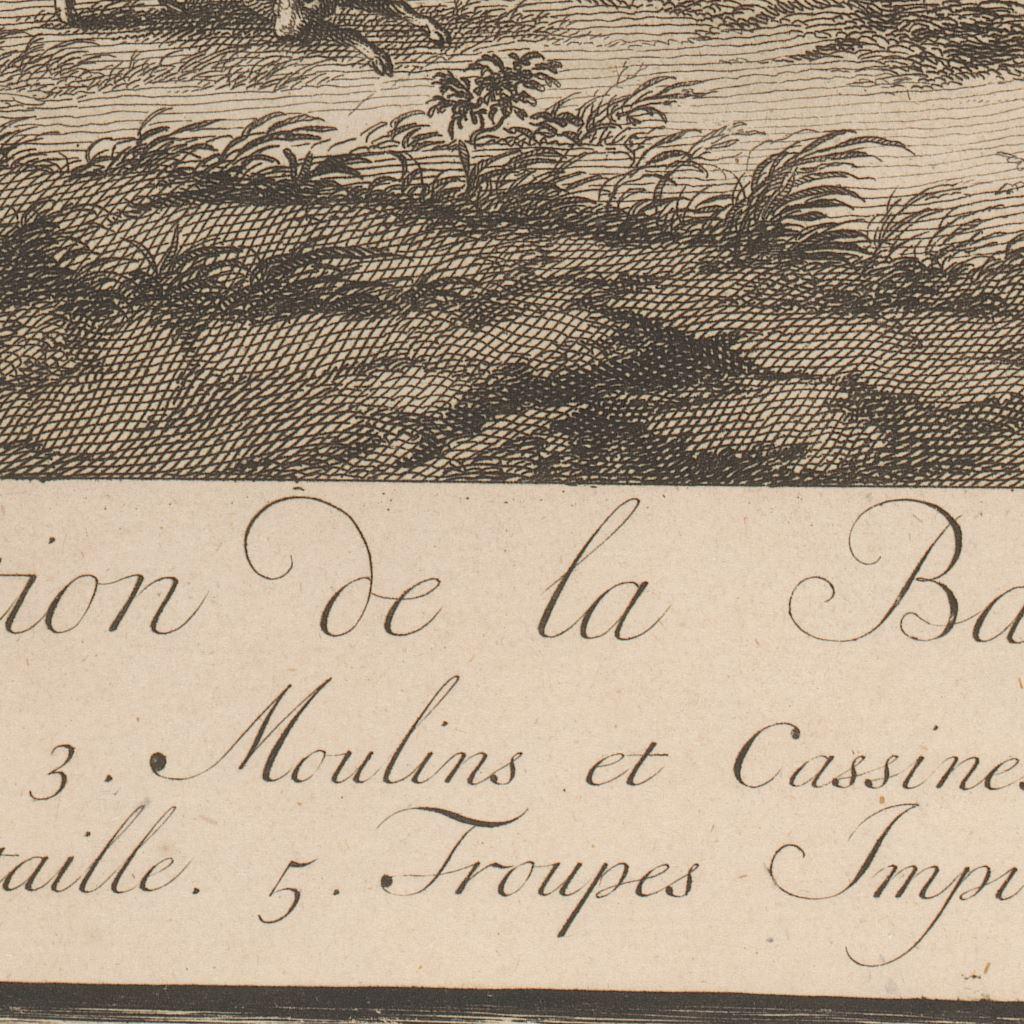 tion de la Ba
3. Moulins et Cassines
taille. 5. Troupes Imp